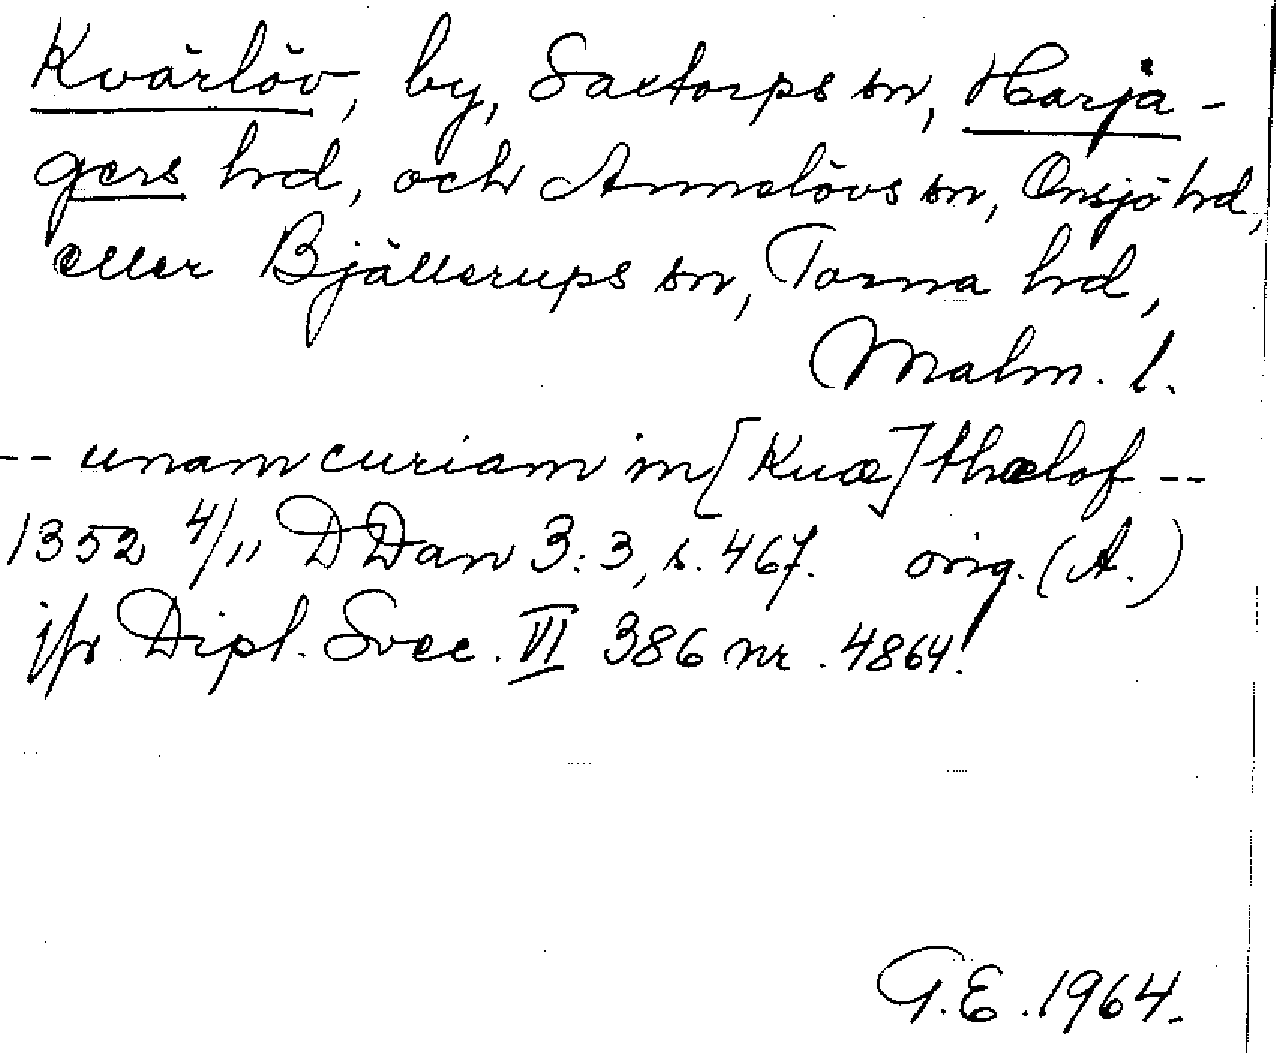 Kvärlöv, by, Saxtorps sn, Harjä-
gers hd, och Annelövs sn, Onsjö hd,
eller Bjällerups sn, Torna hd,
Malm. l.
-- unam curiam in [Kuæ]thælof --
1352 4/11 DDan 3:3, s. 467. orig. (A.)
jfr Dipl. Svec. VI 386 nr. 4864.
G.E. 1964.